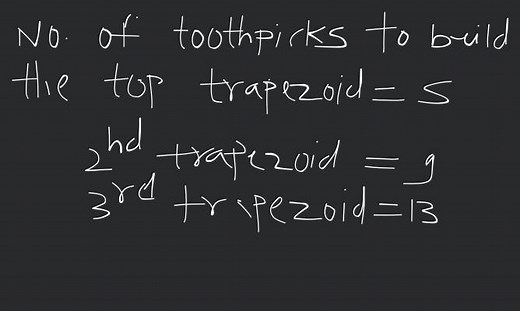 No. of toothpicks to build
the top trapezoid = 5
2nd trapezoid = 9
3rd trapezoid = 13